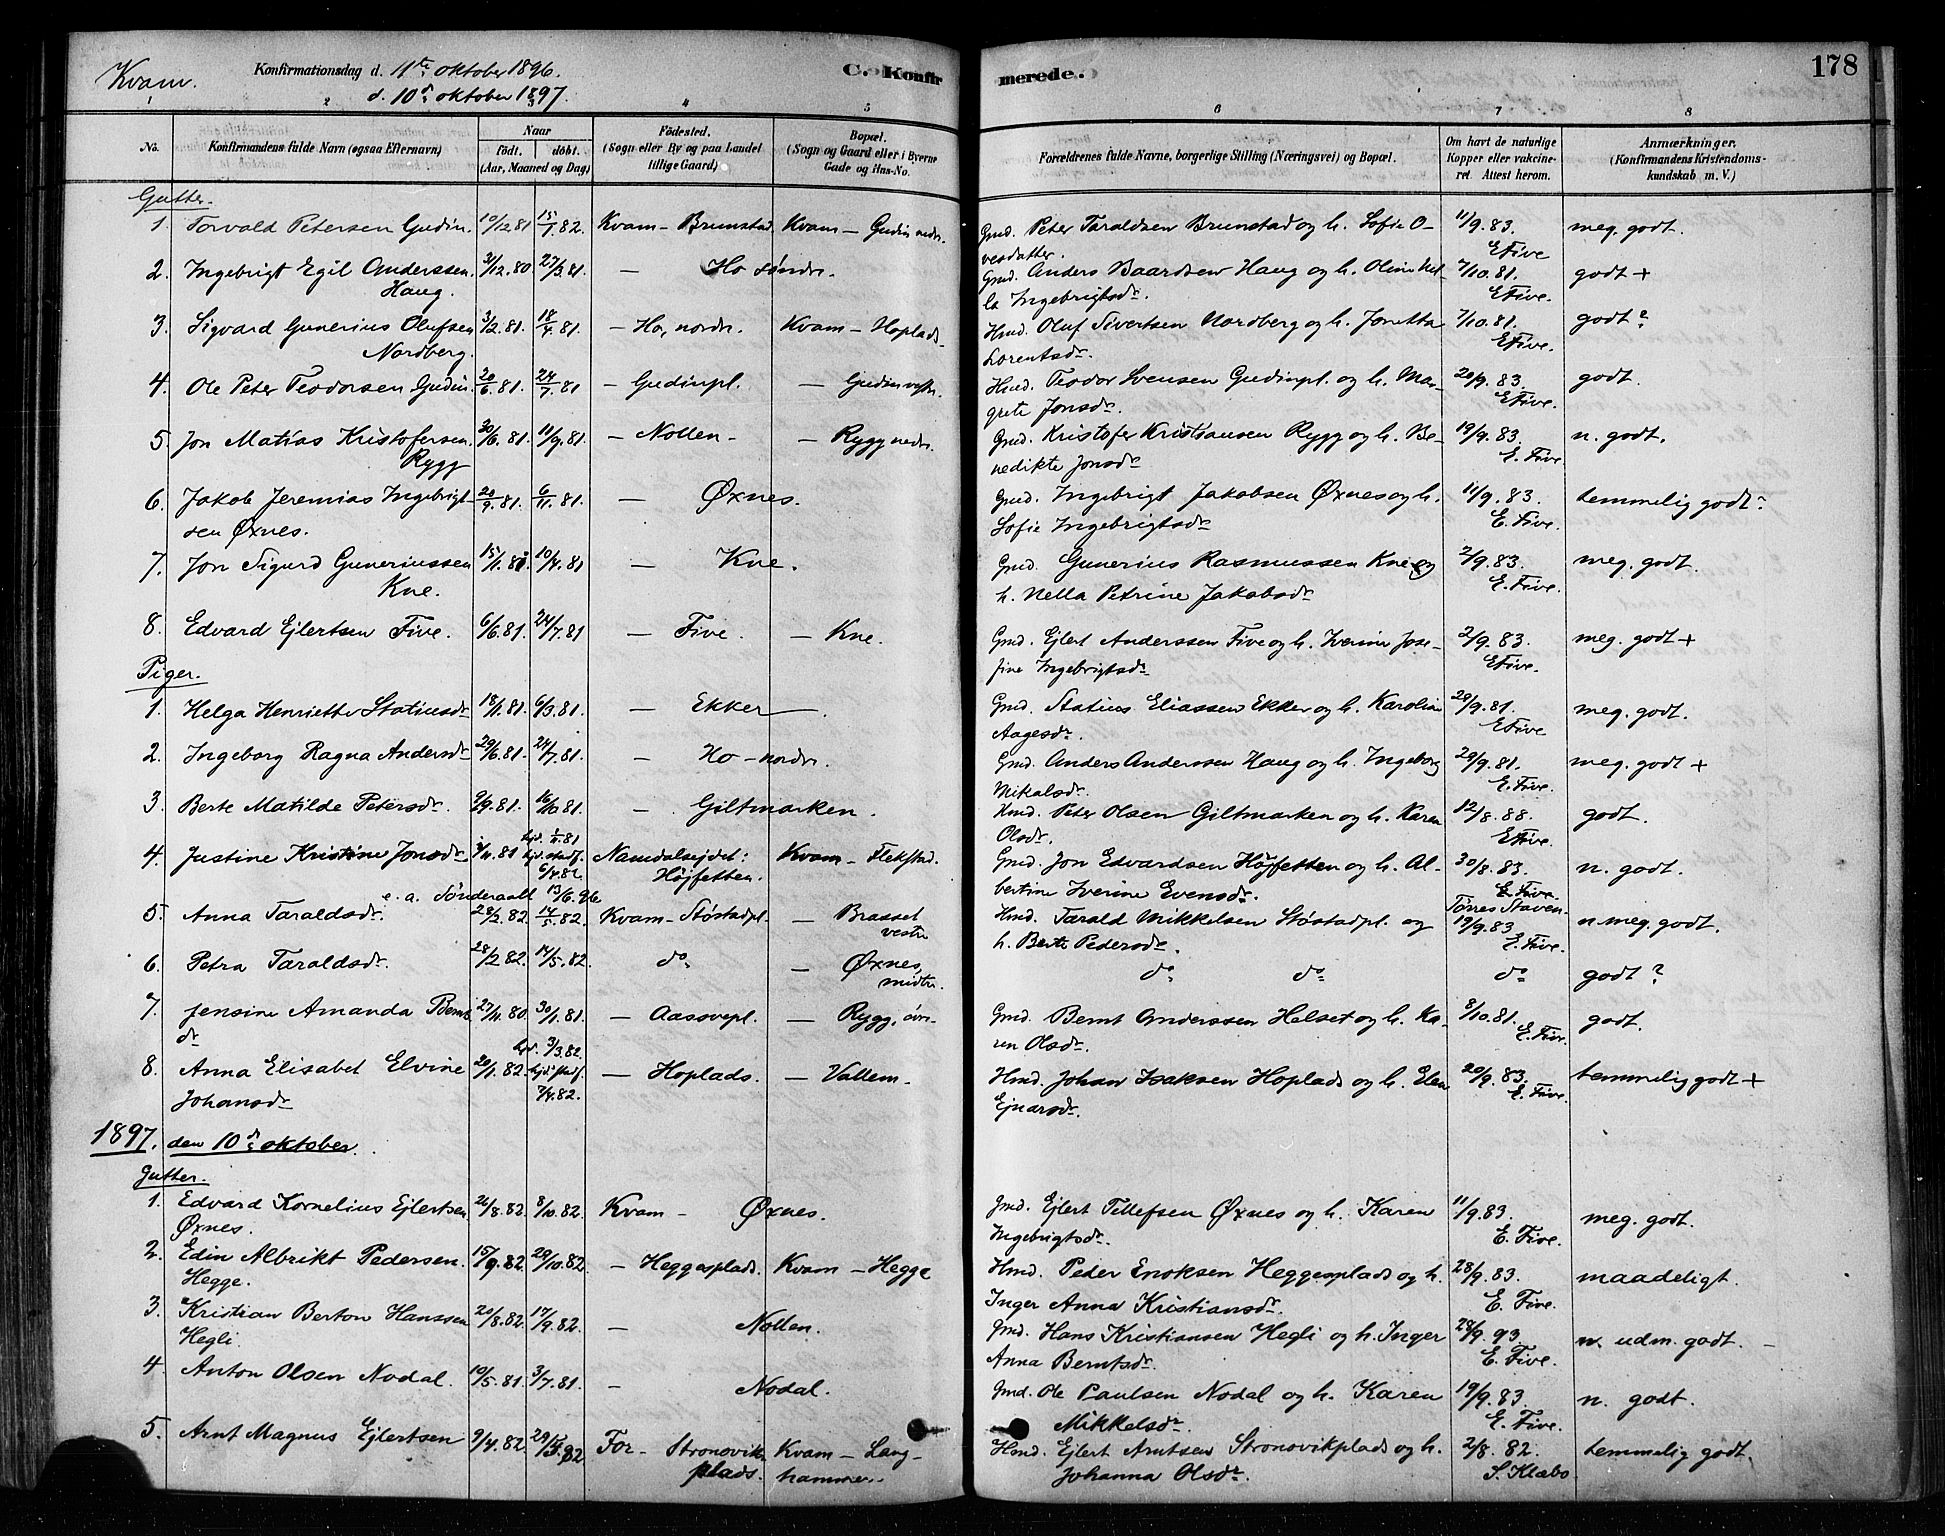 Kvam. Konfirmationsdag d. 11te oktober 1896. C. Konfirmerede. 178
d. 10de oktober 1897.
1 2 3 4 5 6 7 8
No. Konfirmandens fulde Navn (ogsaa Efternavn) Naar födt. döbt. (Aar, Maaned og Dag) Födested. (Sogn eller By og paa Landet tillige Gaard) Bopæl. (Sogn og Gaard eller i Byerne Gade og Hus-No. Forældrenes fulde Navne, borgerlige Stilling (Næringsvei) og Bopæl. Om havt de naturlige Kopper eller vakcineret. Attest herom. Anmærkninger. (Konfirmandens Kristendomskundskab m. V.)
Gutter.
1. Torvald Petersen Gudin. 10/12.81 15/1.82. Kvam - Brunstad Kvam - Gudin nedr. Gmd. Peter Taraldsen Brunstad og h. Sofie O- 11/9.83. meg. godt.
vesdatter. E Five
2. Ingebrigt Egil Anderssen 3/12.80 27/3.81. - Ho søndr. Gmd. Anders Baardsen Haug og h. Oline Nel- 7/10.81. godt +
Haug. la Ingebrigtsdr. E Five.
3. Sigvard Gunerius Olufsen 3/2.81. 18/4.81. - Ho, nordr. Kvam - Hoplads. Hmd. Oluf Sivertsen Nordberg og h. Jonetta 7/10.81. godt?
Nordberg. Lorentsdr. E Five.
4. Ole Peter Teodorsen Gudin 20/6.81. 24/7.81 - Gudinpl. - Gudin vestr. Hmd. Teodor Svensen Gudinpl. og h. Mar- 20/9.83. godt.
grete Jonsdr. E Five.
5. Jon Matias Kristofersen 30/6.81. 11/9.81. - Nolten - - Rygg nedr. Gmd. Kristofer Kristiansen Rygg og h. Be- 19/9.83. n. godt.
Rygg nedikte Jonsdr. E. Five
6. Jakob Jeremias Ingebrigt- 20/9.81. 6/11.81. - Øxnes. Gmd. Ingebrigt Jakobsen Øxnes og h. 11/9.83. temmelig godt?
sen Øxnes. Sofie Ingebrigtsdr. E. Five.
7. Jon Sigurd Guneriussen 15/1.81 10/4.81 - Kne. Gmd. Gunerius Rasmussen Kne og 2/9.83. meg. godt.
Kne. h. Nella Petrine Jakobsdr. E. Five.
8. Edvard Ejlertsen Five. 6/6.81. 24/7.81 - Five. - Kne. Gmd. Ejlert Anderssen Five og h. Iverine Jose- 2/9.83. meg. godt +
fine Ingebrigtsdr. E Five.
Piger.
1. Helga Henriette Statiusdr. 18/1.81. 6/3.81. - Ekker - Gmd. Statius Eliassen Ekker og h. Karoline 20/9.81. meg. godt.
Aagesdr. E Five
2. Ingeborg Ragna Andersdr. 29/6.81. 24/7.81. - Ho - nordr. Gmd. Anders Anderssen Haug og h. Ingeborg 20/9.81. meg. godt +
Mikalsdr. E. Five.
3. Berte Matilde Petersdr. 9/9.81. 16/10.81 - Giltmarken. Hmd. Peter Olsen Giltmarken og h. Karen 12/8.88. godt.
Olsdr. E Five.
4. Justine Kristine Jonsdr. 1/11.81 hjd. 1/11.81 hjd. stadf. 6/4.82. Namdalsejdet: Kvam - Flekstad. Gmd. Jon Edvardsen Højfetten og h. Al- 30/8.83. n. godt.
Højfetten. bertine Iverine Evensdr. E Five.
e. a. Sønderaalt 13/6.96 Torres Staven-
5. Anna Taraldsdr. 28/2.82. 14/5.82. Kvam - Støstadpl. - Brasset Hmd. Tarald Mikkelsen Støstadpl. og 19/9.83. n. meg. godt.
vestr. h. Berte Pedersdr. E. Five.
6. Petra Taraldsdr. 28/2.82. 14/5.82. do - Øxnes, do do do godt?
midtr.
7. Jensine Amanda Bernt 27/11.80. 30/1.81. - Aassvepl. - Rygg, øvr. Gmd. Bernt Anderssen Helset og h. Ka- 8/10.81. godt.
dr. ren Olsdr. E. Five.
8. Anna Elisabet Elvine 20/1.82. hjd. 3/3.82. hjd. stadf. 7/4.82. - Hoplads. - Vallem. Hmd. Johan Isaksen Hoplads og h. Elen 20/9.83. temmelig godt +
Johansdr. Ejnarsdr. E. Five.
1897. den 10de oktober.
Gutter.
1. Edvard Kornelius Ejlertsen 26/8.82. 8/10.82. Kvam - Øxnes. Gmd. Ejlert Tillefsen Øxnes og h. Karen 11/9.83. meg. godt.
Øxnes. Ingebrigtsdr. E. Five.
2. Edin Albrikt Pedersen 15/9.82. 29/10.82. - Heggesplads. Kvam - Hegge Hmd. Peder Enoksen Heggesplads og h. 28/9.83. maadeligt.
Hegge. Inger Anna Kristiansdr. E. Five.
3. Kristian Berton Hanssen 21/8.82. 17/9.82. - Nolten. Gmd. Hans Kristiansen Hegli og h. Inger 28/9.93. n. udm. godt.
Hegli. Anna Berntsdr. E. Five.
4. Anton Olsen Nodal. 10/5.81. 3/7.81. - Nodal. Gmd. Ole Paulsen Nodal og h. Karen 19/9.83. n. godt.
Mikkelsdr. E. Five.
5. Arnt Magnus Ejlertsen 9/4.82. 29/5.82 For - Stronovik- Kvam - Lang- Hmd. Ejlert Arntsen Stronovikplads og h. 2/8.82. temmelig godt.
plads. hammer. Johanna Olsdr. S. Klæbo